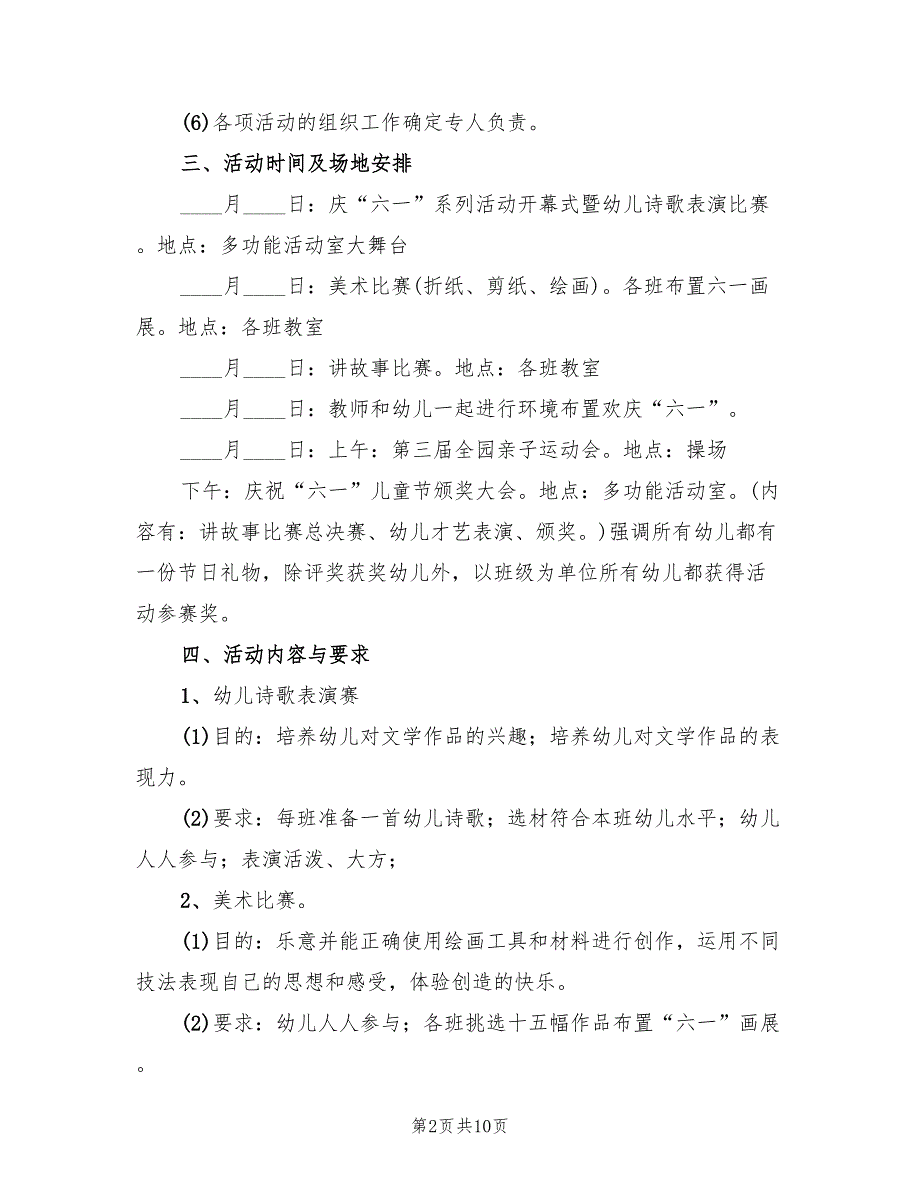 (6)各项活动的组织工作确定专人负责。
三、活动时间及场地安排
____月____日：庆“六一”系列活动开幕式暨幼儿诗歌表演比赛
。地点：多功能活动室大舞台
____月____日：美术比赛(折纸、剪纸、绘画)。各班布置六一画
展。地点：各班教室
____月____日：讲故事比赛。地点：各班教室
____月____日：教师和幼儿一起进行环境布置欢庆“六一”。
____月____日：上午：第三届全园亲子运动会。地点：操场
下午：庆祝“六一”儿童节颁奖大会。地点：多功能活动室。(内
容有：讲故事比赛总决赛、幼儿才艺表演、颁奖。)强调所有幼儿都有
一份节日礼物，除评奖获奖幼儿外，以班级为单位所有幼儿都获得活
动参赛奖。
四、活动内容与要求
1、幼儿诗歌表演赛
(1)目的：培养幼儿对文学作品的兴趣；培养幼儿对文学作品的表
现力。
(2)要求：每班准备一首幼儿诗歌；选材符合本班幼儿水平；幼儿
人人参与；表演活泼、大方；
2、美术比赛。
(1)目的：乐意并能正确使用绘画工具和材料进行创作，运用不同
技法表现自己的思想和感受，体验创造的快乐。
(2)要求：幼儿人人参与；各班挑选十五幅作品布置“六一”画展
。
第2页共10页